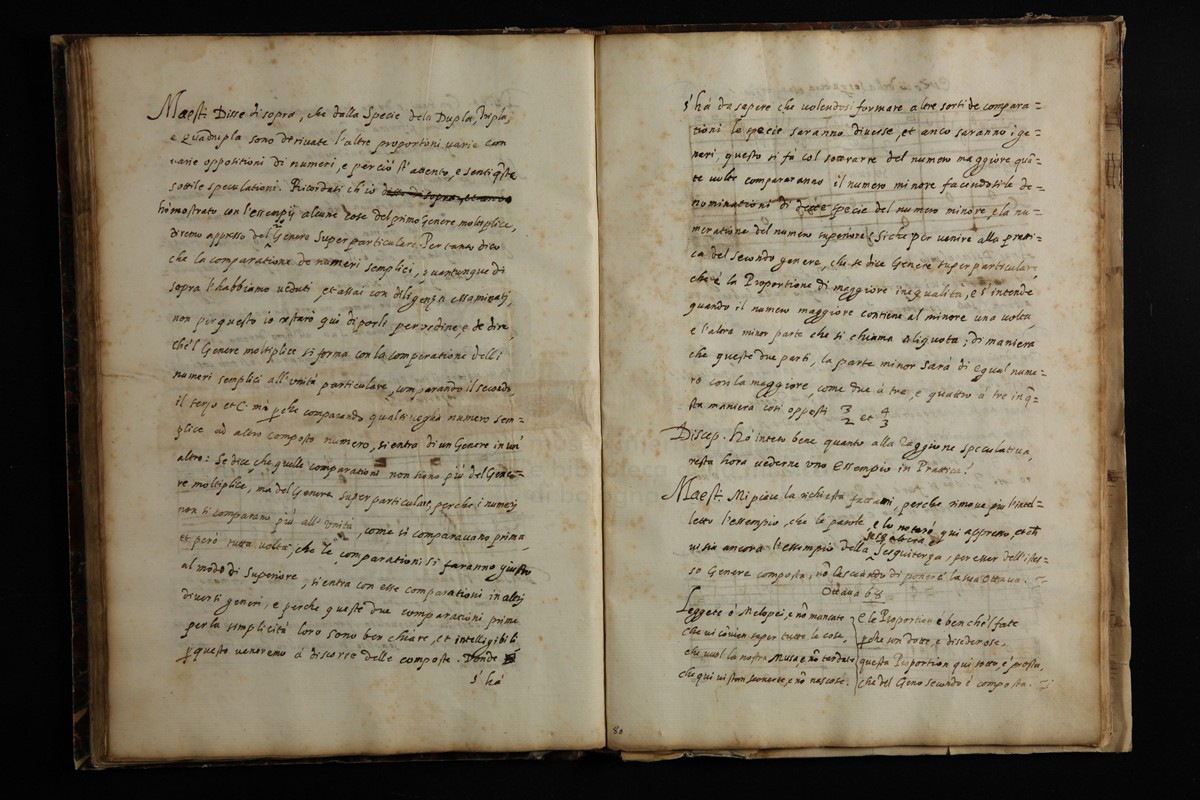 Maest. Disse di sopra, che dalla Specie dela Dupla, Tripla,
e Quadrupla sono derivate l'altre proportioni varie con
varie oppositioni di numeri, e perciò stà attento, e senti q̃ste
sottile speculationi. Ricordati ch'io
hò mostrato con l'essempij alcune cose del primo Genere moltiplice,
diremo appresso del Genere Superparticulare. Per tanto dico
che la comparatione de numeri semplici, quantunque di
sopra l'habbiamo veduti, et assai con diligenza essaminati,
non per questo io restarò qui di porli per ordine, e de dire,
che'l Genere moltiplice si forma con la comparatione delli
numeri semplici all'unità particulare, comparando il secondo,
il terzo etc. mà p̱che comparando qualsivoglia numero sem=
plice ad altro composto numero, si entra di un Genere in un'
altro: Se dice, che quelle comparationi non siano più del Gene=
re moltiplice, ma del Genere superparticulare, perche i numeri
non si comparano più all'unità, come si comparavano prima,
et però tutta volta, che le comparationi si faranno giusto
al modo di Superiore, si entra con esse comparationi in altri
diversi generi, e perche queste due comparationi prime
per la simplicità loro sono ben chiare, et intelligibili
p̱ questo venremo à discorse delle composte. Donde
s'hà
s'hà da sapere che volendosi formare altre sorti de compara=
tioni le specie saranno diverse, et anco saranno i ge=
neri, questo si fà col sottrarre del numero maggiore quã=
te volte compararanno il numero minore facendosi le de=
nominationi di dette specie del numero minore, e la nu=
meratione del numero superiore; Siche per venire alla pratti=
ca del secondo genere, che se dice Genere superparticulare,
che è la Proportione di maggiore inequalità, e s'intende
quando il numero maggiore contiene al minore una volta,
e l'altra minor parte che si chiama Aliquota; di maniera
che queste due parti, la parte minor sarà di egual nume=
ro così la maggiore, come due à tre, e quattro à tre in q̃=
sta maniera così opposti 3/2 et 4/3
Discep. Hò inteso bene quanto alla raggione speculativa,
resta hora vederne uno essempio in Prattica!
Maest. Mi piace la richiesta fattami, perche rimove più l'intel=
letto l'essempio, che le parole, e lo notarò qui appresso, et ch̃
sesqualtera et
vi sia ancora l'essempio della Sesquiterza, per esser dell'istes=
so Genere composta, nõ lasciando di ponere la sua Ottava.
Ottava 68
Leggete ò Melopei, e nõ mancate
che vi convien saper tutte le cose,
che vuol la nostra Musa, e nõ tardate
che qui vi stan sovente, e nõ nascose.
E le Proportion è ben che'l fate
p̱che son dotte, e disederose,
questa Proportion qui sotto, è posta,
che del Geno secondo è composta.
80